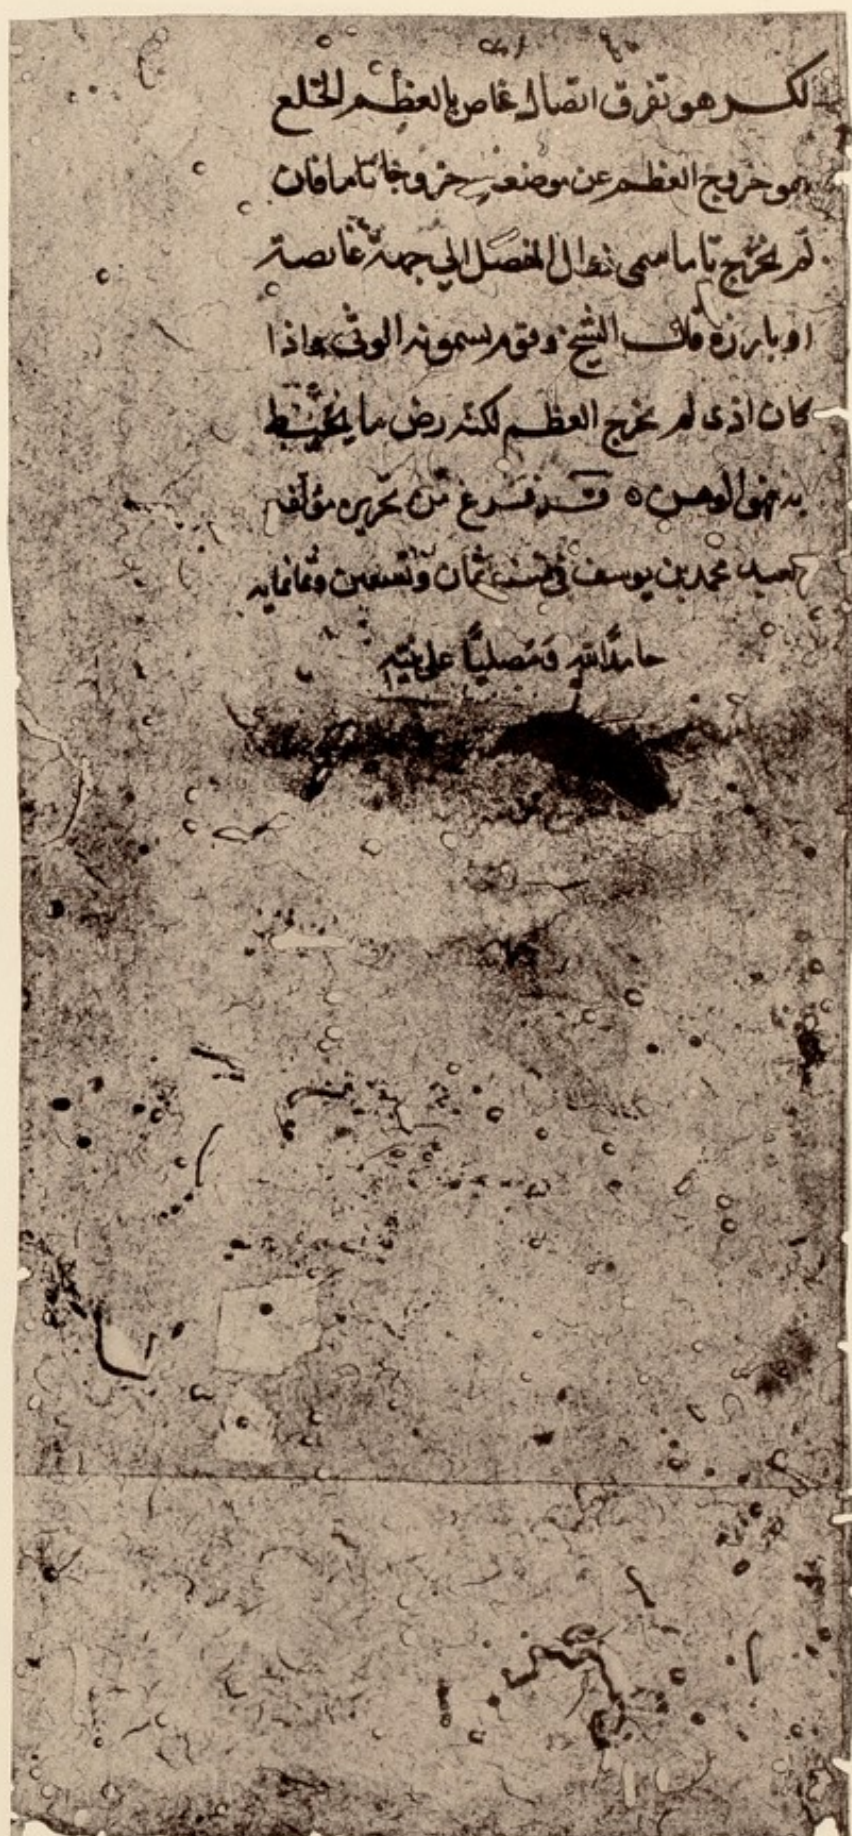 الكسر هو تفرق اتصال خاص بالعظم الخلع
هو خروج العظم عن موضعه خروجا تاما فان
لم يخرج تاما سمى زوال المفصل الى جهة غائصة
او بارزة قال الشيخ وقوم يسمونه الوثى واذا
كان اذى لم يخرج العظم لكنه رض ما يحيط
به فهو الوهن ه قد فرغ من تحريره مؤلفه
العبد محمد بن يوسف في سنة ثمان وتسعين وثمانمايه
حامدا لله ومصليا على نبيه